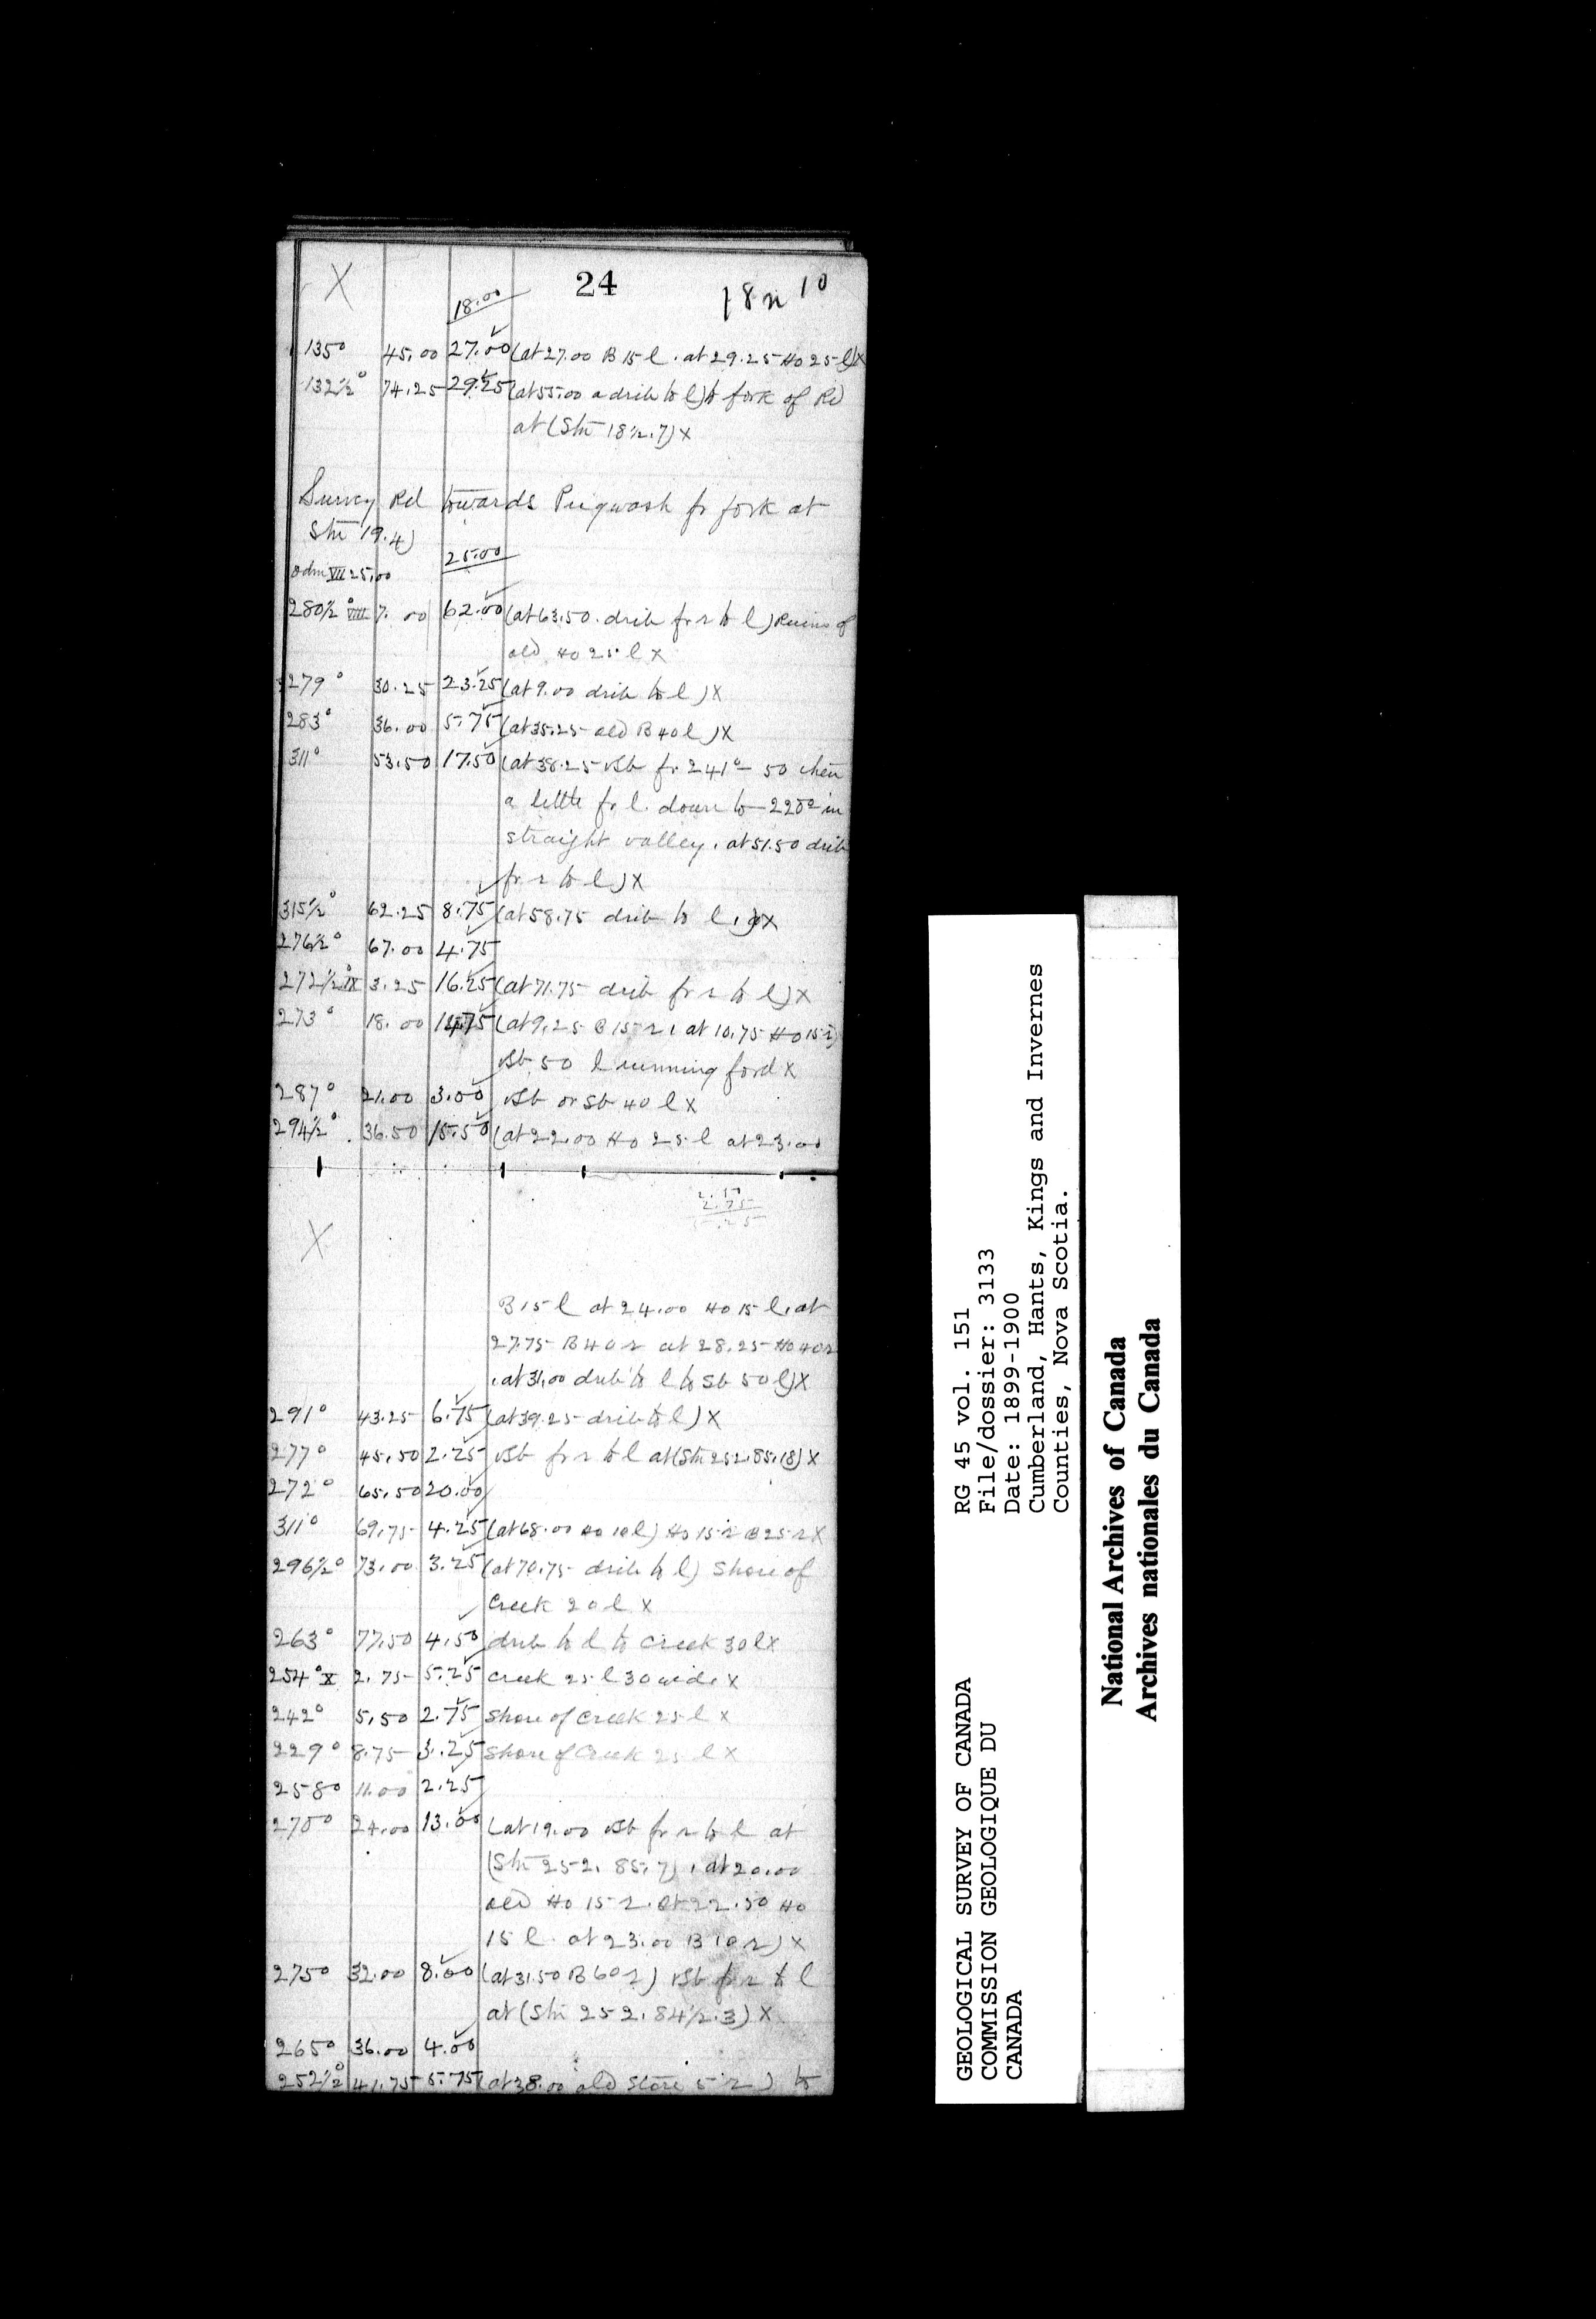 X 24 18n 10
18.00
135° 45.00 27.00 (at 27.00 B 15 l. at 29.25 Ho 25 l) X
132½° 74.25 29.25 (at 55.00 a drib to l) to fork of Rd
at (Stn 18½.7) X
Survey Rd towards Pugwash fr fork at
Stn 19.4)
25.00
odm VII 25.00
280½° VIII 7.00 62.00 (at 63.50 drib fr r to l) Ruins of
old Ho 25 l X
279° 30.25 23.25 (at 9.00 drib to l) X
283° 36.00 5.75 (at 35.25 old B 40 l) X
311° 53.50 17.50 (at 38.25 vSb fr 241° - 50 then
a little fr l. down to - 220° in
straight valley. at 51.50 drib
fr r to l) X
315½° 62.25 8.75 (at 58.75 drib to l.) X
276½° 67.00 4.75
272½° IX 3.25 16.25 (at 71.75 drib fr r to l) X
273° 18.00 14.75 (at 9.25 B 15 r. at 10.75 Ho 15 r)
vSb 50 l running ford X
287° 21.00 3.00 vSb or Sb 40 l X
294½° 36.50 15.50 (at 22.00 Ho 25 l at 23.00
2.75
5.25
X
B 15 l at 24.00 Ho 15 l. at
27.75 B 40 r at 28.25 Ho 40 r
. at 31.00 drib to l to Sb 50 l) X
291° 43.25 6.75 (at 39.25 drib to l) X
277° 45.50 2.25 vSb fr r to l at (Stn 252.85.18) X
272° 65.50 20.00
311° 69.75 4.25 (at 68.00 Ho 10 l) Ho 15 r B 25 r X
296½° 73.00 3.25 (at 70.75 drib to l) Shore of
Creek 20 l X
263° 77.50 4.50 drib to l to Creek 30 l X
254° X 2.75 5.25 Creek 25 l 30 wide X
242° 5.50 2.75 Shore of Creek 25 l X
229° 8.75 3.25 Shore of Creek 25 l X
258° 11.00 2.25
270° 24.00 13.00 (at 19.00 vSb fr r to l at
(Stn 252.85.7). at 20.00
old Ho 15 r. at 22.50 Ho
15 l. at 23.00 B 10 r) X
275° 32.00 8.00 (at 31.50 B 60 r) vSb fr r to l
at (Stn 252.84½.3) X
265° 36.00 4.00
252½° 41.75 5.75 (at 38.00 old Store 5 r) to
GEOLOGICAL SURVEY OF CANADA
COMMISSION GEOLOGIQUE DU
CANADA
RG 45 vol. 151
File/dossier: 3133
Date: 1899-1900
Cumberland, Hants, Kings and Invernes
Counties, Nova Scotia.
National Archives of Canada
Archives nationales du Canada